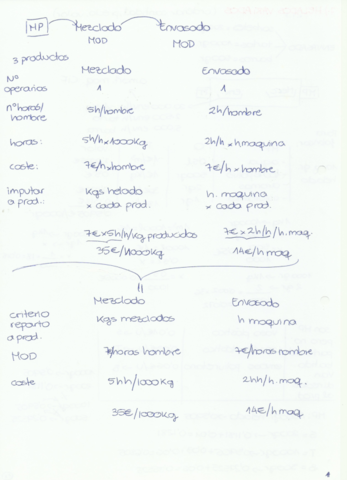 MP Mezclado Envasado
MOD MOD
3 productos
Mezclado Envasado
Nº operarios 1 1
nº horas/ hombre 5h/hombre 2h/hombre
horas: 5h/h x 1000Kg 2h/h x h maquina
coste: 7€/h x hombre 7€/h x hombre
imputar a prod.: Kgs helado x cada prod. h. maquina x cada prod.
7€ x 5h/h/kg producidos 7€ x 2h/h/h. maq.
35€/1000Kg 14€/h maq.
Mezclado Envasado
criterio reparto a prod. Kgs mezclados h maquina
MOD 7/horas hombre 7€/horas hombre
coste 5hh/1000Kg 2hh/h. maq.
35€/1000Kg 14€/h maq